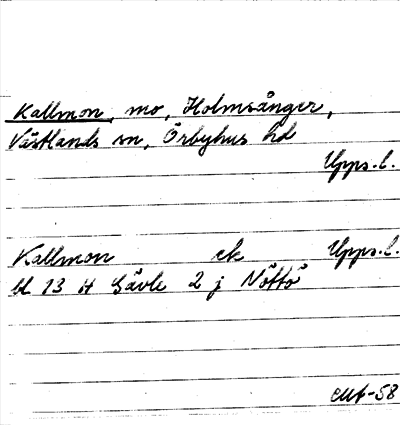 Kallmon, mo, Holmsånger,
Västlands sn, Örbyhus hd
Upps.l.
Kallmon ek Upps.l.
bl 13 H Gävle 2 j Nöttö
CMb-58